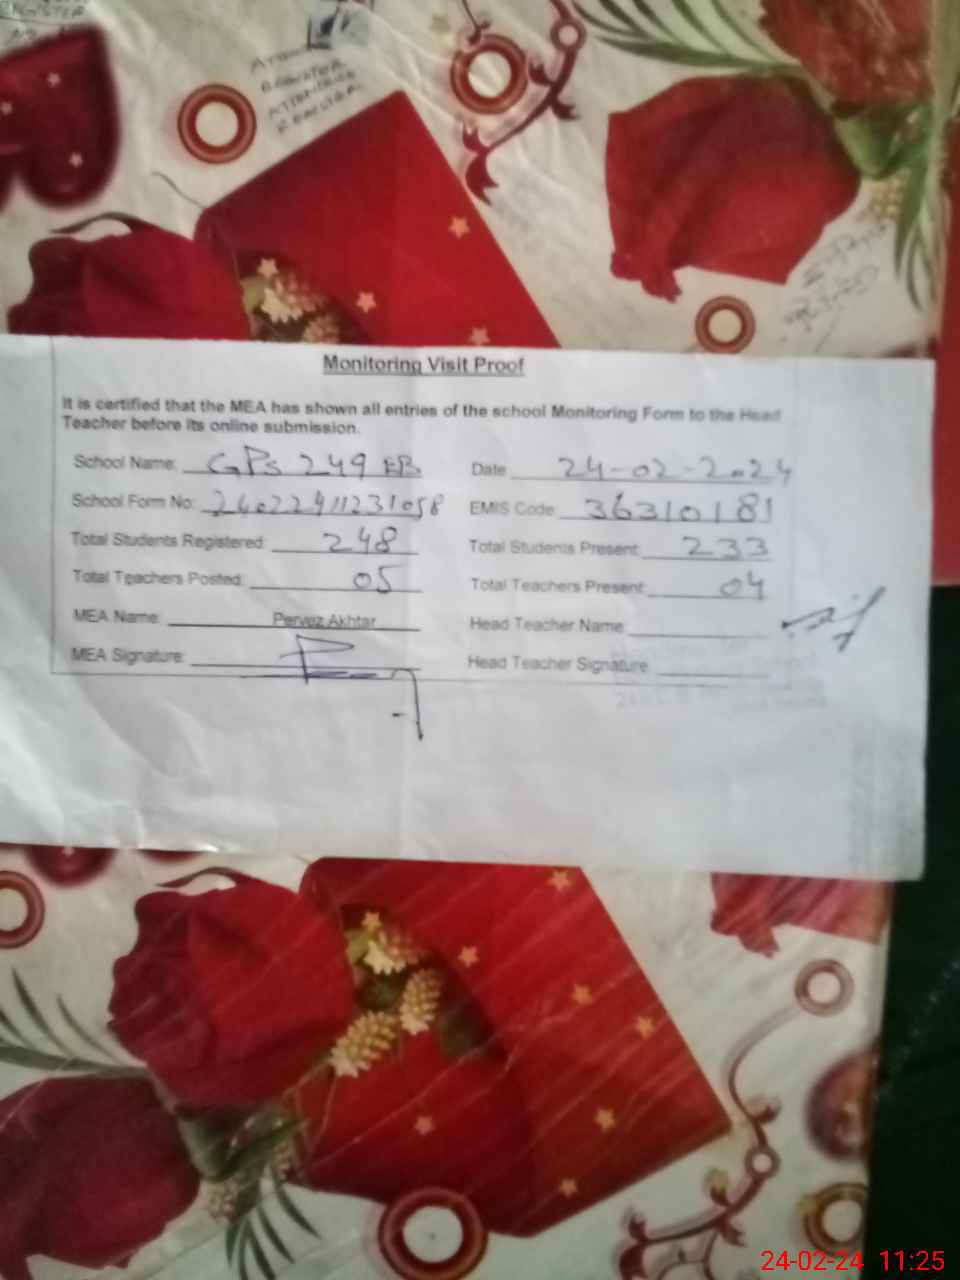 REGISTER
ATTENDANCE
REGISTER
Monitoring Visit Proof
It is certified that the MEA has shown all entries of the school Monitoring Form to the Head
Teacher before its online submission.
School Name: GPS 249 EB Date 24-02-2024
School Form No: 24022411231058 EMIS Code 36310181
Total Students Registered: 248 Total Students Present: 233
Total Teachers Posted: 05 Total Teachers Present: 04
MEA Name: Pervez Akhtar Head Teacher Name
MEA Signature: Head Teacher Signature
24-02-24 11:25